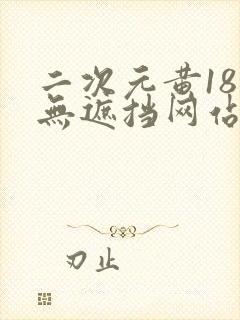 二次元黄18
無遮挡网佔
刃止